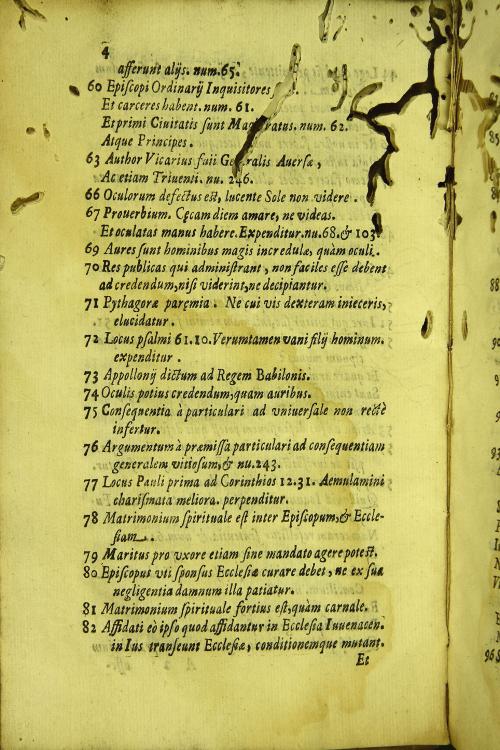 4
afferunt alijs. num.65.
60 Episcopi Ordinarij Inquisitores
Et carceres habent. num. 61.
Et primi Ciuitatis sunt num. 62.
Atque Principes.
63 Author Vicarius fuit Aversæ,
Ac etiam Triuenti. nu. 246.
66 Oculorum defectus est, lucente Sole non videre.
67 Prouerbium. Cęcam diem amare, ne videas.
Et oculatas manus habere. Expenditur. nu.68. & 103.
69 Aures sunt hominibus magis incredulæ, quàm oculi.
70 Res publicas qui administrant, non faciles esse debent
ad credendum, nisi viderint, ne decipiantur.
71 Pythagoræ paręmia. Ne cui vis dexteram inieceris,
elucidatur.
72 Locus psalmi 61.10. Verumtamen vani filij hominum.
expenditur.
73 Appollonij dictum ad Regem Babilonis.
74 Oculis potius credendum, quam auribus.
75 Consequentia à particulari ad vniuersale non rectè
infertur.
76 Argumentum à præmissa particulari ad consequentiam
generalem vitiosum, & nu.243.
77 Locus Pauli prima ad Corinthios 12.31. Aemulamini
charismata meliora. perpenditur.
78 Matrimonium spirituale est inter Episcopum, & Eccle-
siam.
79 Maritus pro vxore etiam sine mandato agere potest.
80 Episcopus vti sponsus Ecclesiæ curare debet, ne ex sua
negligentia damnum illa patiatur.
81 Matrimonium spirituale fortius est, quàm carnale.
82 Affidati eò ipso quod affidantur in Ecclesia Iuuenacen.
in Ius transeunt Ecclesiæ, conditionemque mutant.
Et